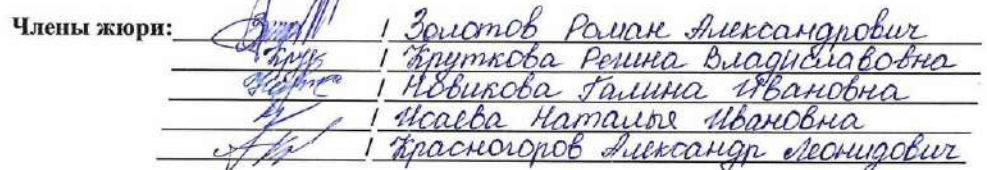 Члены жюри: / Золотов Роман Александрович
/ Круткова Регина Владиславовна
/ Новикова Галина Ивановна
/ Исаева Наталья Ивановна
/ Красногоров Александр Леонидович